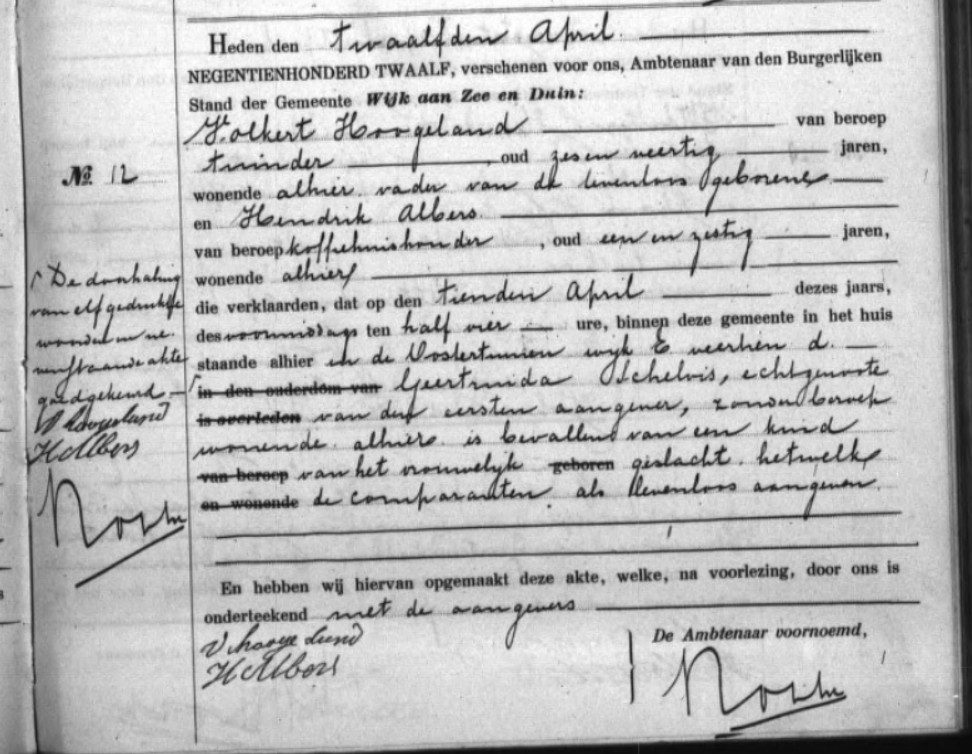 Heden den twaalfden April.
NEGENTIENHONDERD TWAALF, verschenen voor ons, Ambtenaar van den Burgerlijken
Stand der Gemeente Wijk aan Zee en Duin:
Volkert Hoogeland van beroep
tuinder, oud zes en veertig jaren,
No. 12
wonende alhier, vader van de levenloos geborene
en Hendrik Albers
van beroep koffiehuishouder, oud een en zestig jaren,
wonende alhier
die verklaarden, dat op den tienden April dezes jaars,
des voormiddags ten half vier ure, binnen deze gemeente in het huis
staande alhier in de Oostertuinen wijk E d.
in den ouderdom van Geertruida Schelvis, echtgenoote
is overleden van den eersten aangever, zonder beroep
wonende alhier is bevallen van een kind
van beroep van het vrouwelijk geboren geslacht, hetwelk
en wonende de comparanten als levenloos aangeven.
De doorhaling
van elf gedrukte
woorden in ne-
nenstaande akte
goedgekeurd
V Hoogeland
H Albers
En hebben wij hiervan opgemaakt deze akte, welke, na voorlezing, door ons is
onderteekend met de aangevers
V hoogeland
H Albers
De Ambtenaar voornoemd,